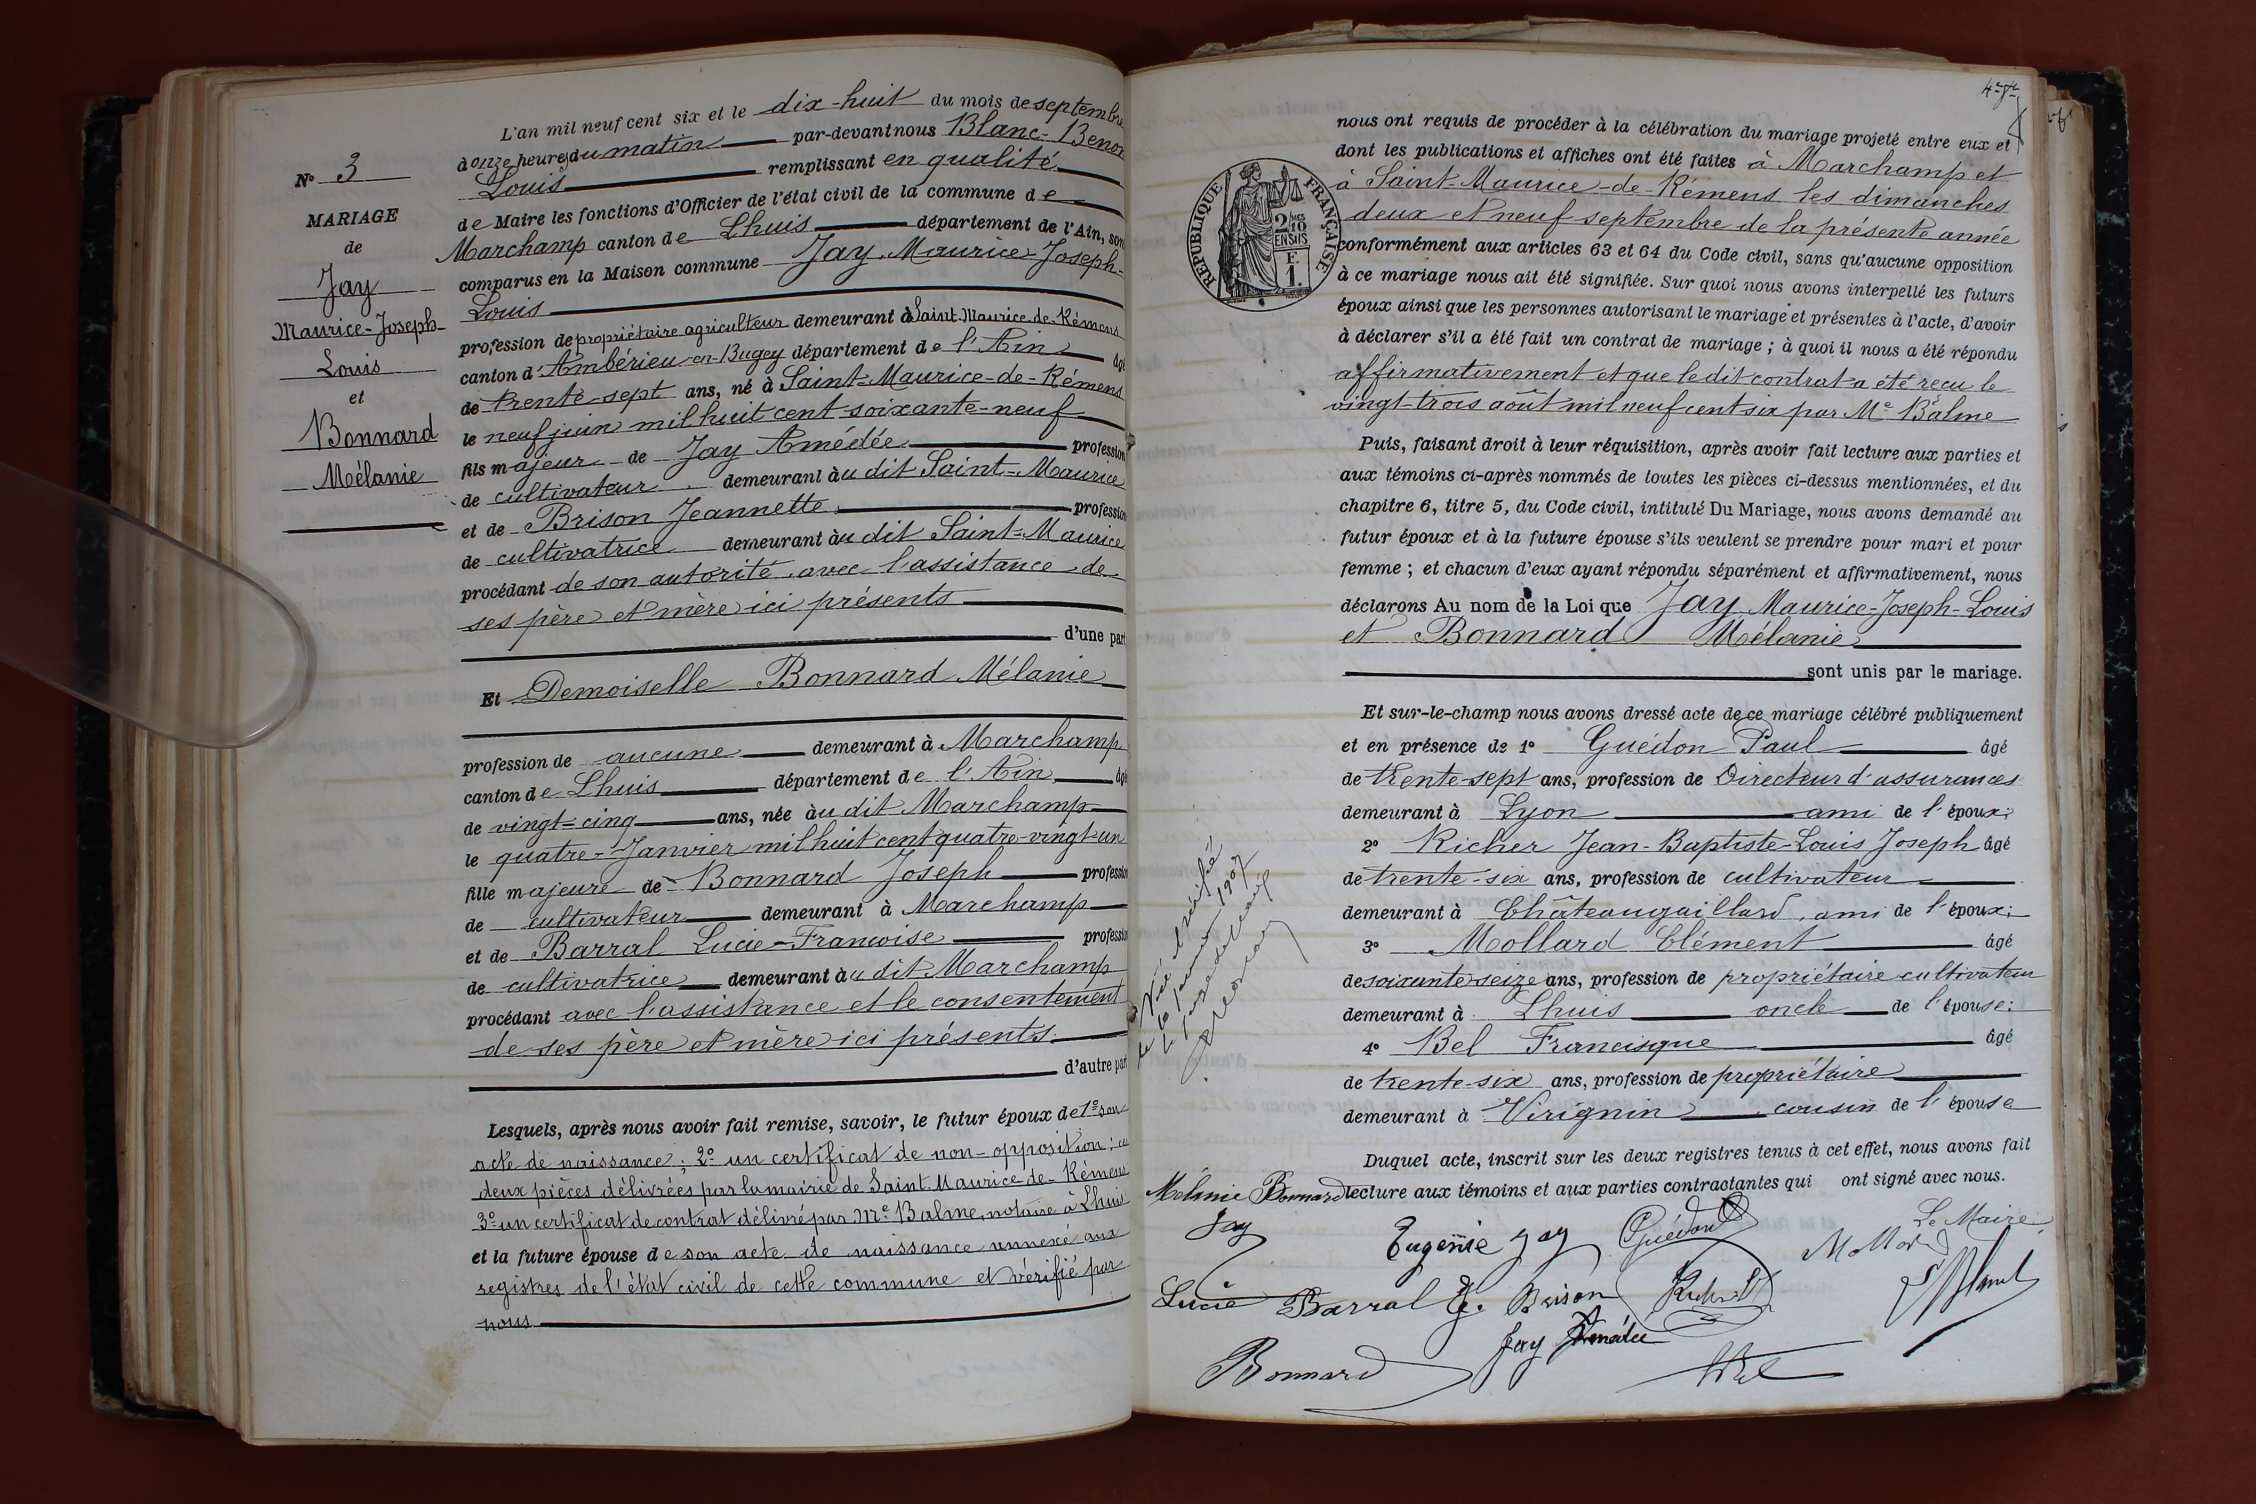 N° 3
MARIAGE
de
Jay
Maurice-Joseph-
Louis
et
Bonnard
Mélanie
L'an mil neuf cent six et le dix-huit du mois de septembre
à onze heures du matin par-devant nous Blanc-Benon
Louis remplissant en qualité
de Maire les fonctions d'Officier de l'état civil de la commune de
Marchamp canton de Lhuis département de l'Ain, sont
comparus en la Maison commune Jay Maurice-Joseph-
Louis
profession de propriétaire agriculteur demeurant à Saint-Maurice-de-Rémens
canton d'Ambérieu-en-Bugey département de l'Ain âgé
de trente-sept ans, né à Saint-Maurice-de-Rémens
le neuf juin mil huit cent soixante-neuf
fils majeur de Jay Amédée profession
de cultivateur demeurant à u dit Saint-Maurice
et de Brison Jeannette profession
de cultivatrice demeurant à u dit Saint-Maurice
procédant de son autorité, avec l'assistance de
ses père et mère ici présents
d'une part
Et Demoiselle Bonnard Mélanie
profession de aucune demeurant à Marchamp
canton de Lhuis département de l'Ain âgé
de vingt-cinq ans, née à u dit Marchamp
le quatre Janvier mil huit cent quatre-vingt-un
fille majeure de Bonnard Joseph profession
de cultivateur demeurant à Marchamp
et de Barral Lucie-Françoise profession
de cultivatrice demeurant à u dit Marchamp
procédant avec l'assistance et le consentement
de ses père et mère ici présents
d'autre part
Lesquels, après nous avoir fait remise, savoir, le futur époux de 1° son
acte de naissance; 2° un certificat de non-opposition; ces
deux pièces délivrées par la mairie de Saint-Maurice-de-Rémens
3° un certificat de contrat délivré par Me Balme, notaire à Lhuis
et la future épouse de son acte de naissance annexé aux
registres de l'état civil de cette commune et vérifié par
nous
REPUBLIQUE FRANÇAISE
2/10
EN SUS
F.
1.
nous ont requis de procéder à la célébration du mariage projeté entre eux et
dont les publications et affiches ont été faites à Marchamp et
à Saint-Maurice-de-Rémens les dimanches
deux et neuf septembre de la présente année
conformément aux articles 63 et 64 du Code civil, sans qu'aucune opposition
à ce mariage nous ait été signifiée. Sur quoi nous avons interpellé les futurs
époux ainsi que les personnes autorisant le mariage et présentes à l'acte, d'avoir
à déclarer s'il a été fait un contrat de mariage ; à quoi il nous a été répondu
affirmativement et que ledit contrat a été reçu le
vingt-trois août mil neuf cent six par Me Balme
Puis, faisant droit à leur réquisition, après avoir fait lecture aux parties et
aux témoins ci-après nommés de toutes les pièces ci-dessus mentionnées, et du
chapitre 6, titre 5, du Code civil, intitulé Du Mariage, nous avons demandé au
futur époux et à la future épouse s'ils veulent se prendre pour mari et pour
femme ; et chacun d'eux ayant répondu séparément et affirmativement, nous
déclarons Au nom de la Loi que Jay Maurice-Joseph-Louis
et Bonnard Mélanie
sont unis par le mariage.
Et sur-le-champ nous avons dressé acte de ce mariage célébré publiquement
et en présence de 1° Guédon Paul âgé
de trente-sept ans, profession de Directeur d'assurances
demeurant à Lyon ami de l'époux;
2° Richer Jean-Baptiste-Louis Joseph âgé
de trente-six ans, profession de cultivateur
demeurant à Châteaugaillard, ami de l'époux;
3° Mollard Clément âgé
de soixante-seize ans, profession de propriétaire cultivateur
demeurant à Lhuis oncle de l'épouse;
4° Bel Francisque âgé
de trente-six ans, profession de propriétaire
demeurant à Virignin cousin de l'épouse
Duquel acte, inscrit sur les deux registres tenus à cet effet, nous avons fait
lecture aux témoins et aux parties contractantes qui ont signé avec nous.
Vu et vérifié
1907
Mélanie Bonnard
Jay
Eugénie Jay
Guédon
Mollard
Le Maire
Lucie Barral
J. Brison
Jay Amédée
Bonnard
Bel